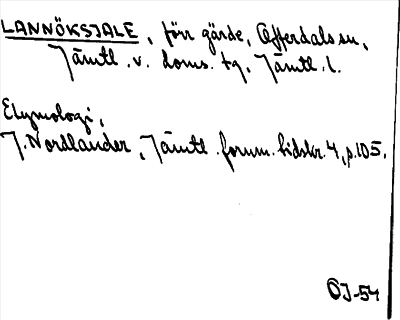 LANNÖKSJALE, förr gärde, Offerdals sn,
Jämtl. v. doms. tg, Jämtl. l.
Etymologi,
J. Nordlander, Jämtl. fornm. tidskr. 4, p. 105.
ÖJ-54